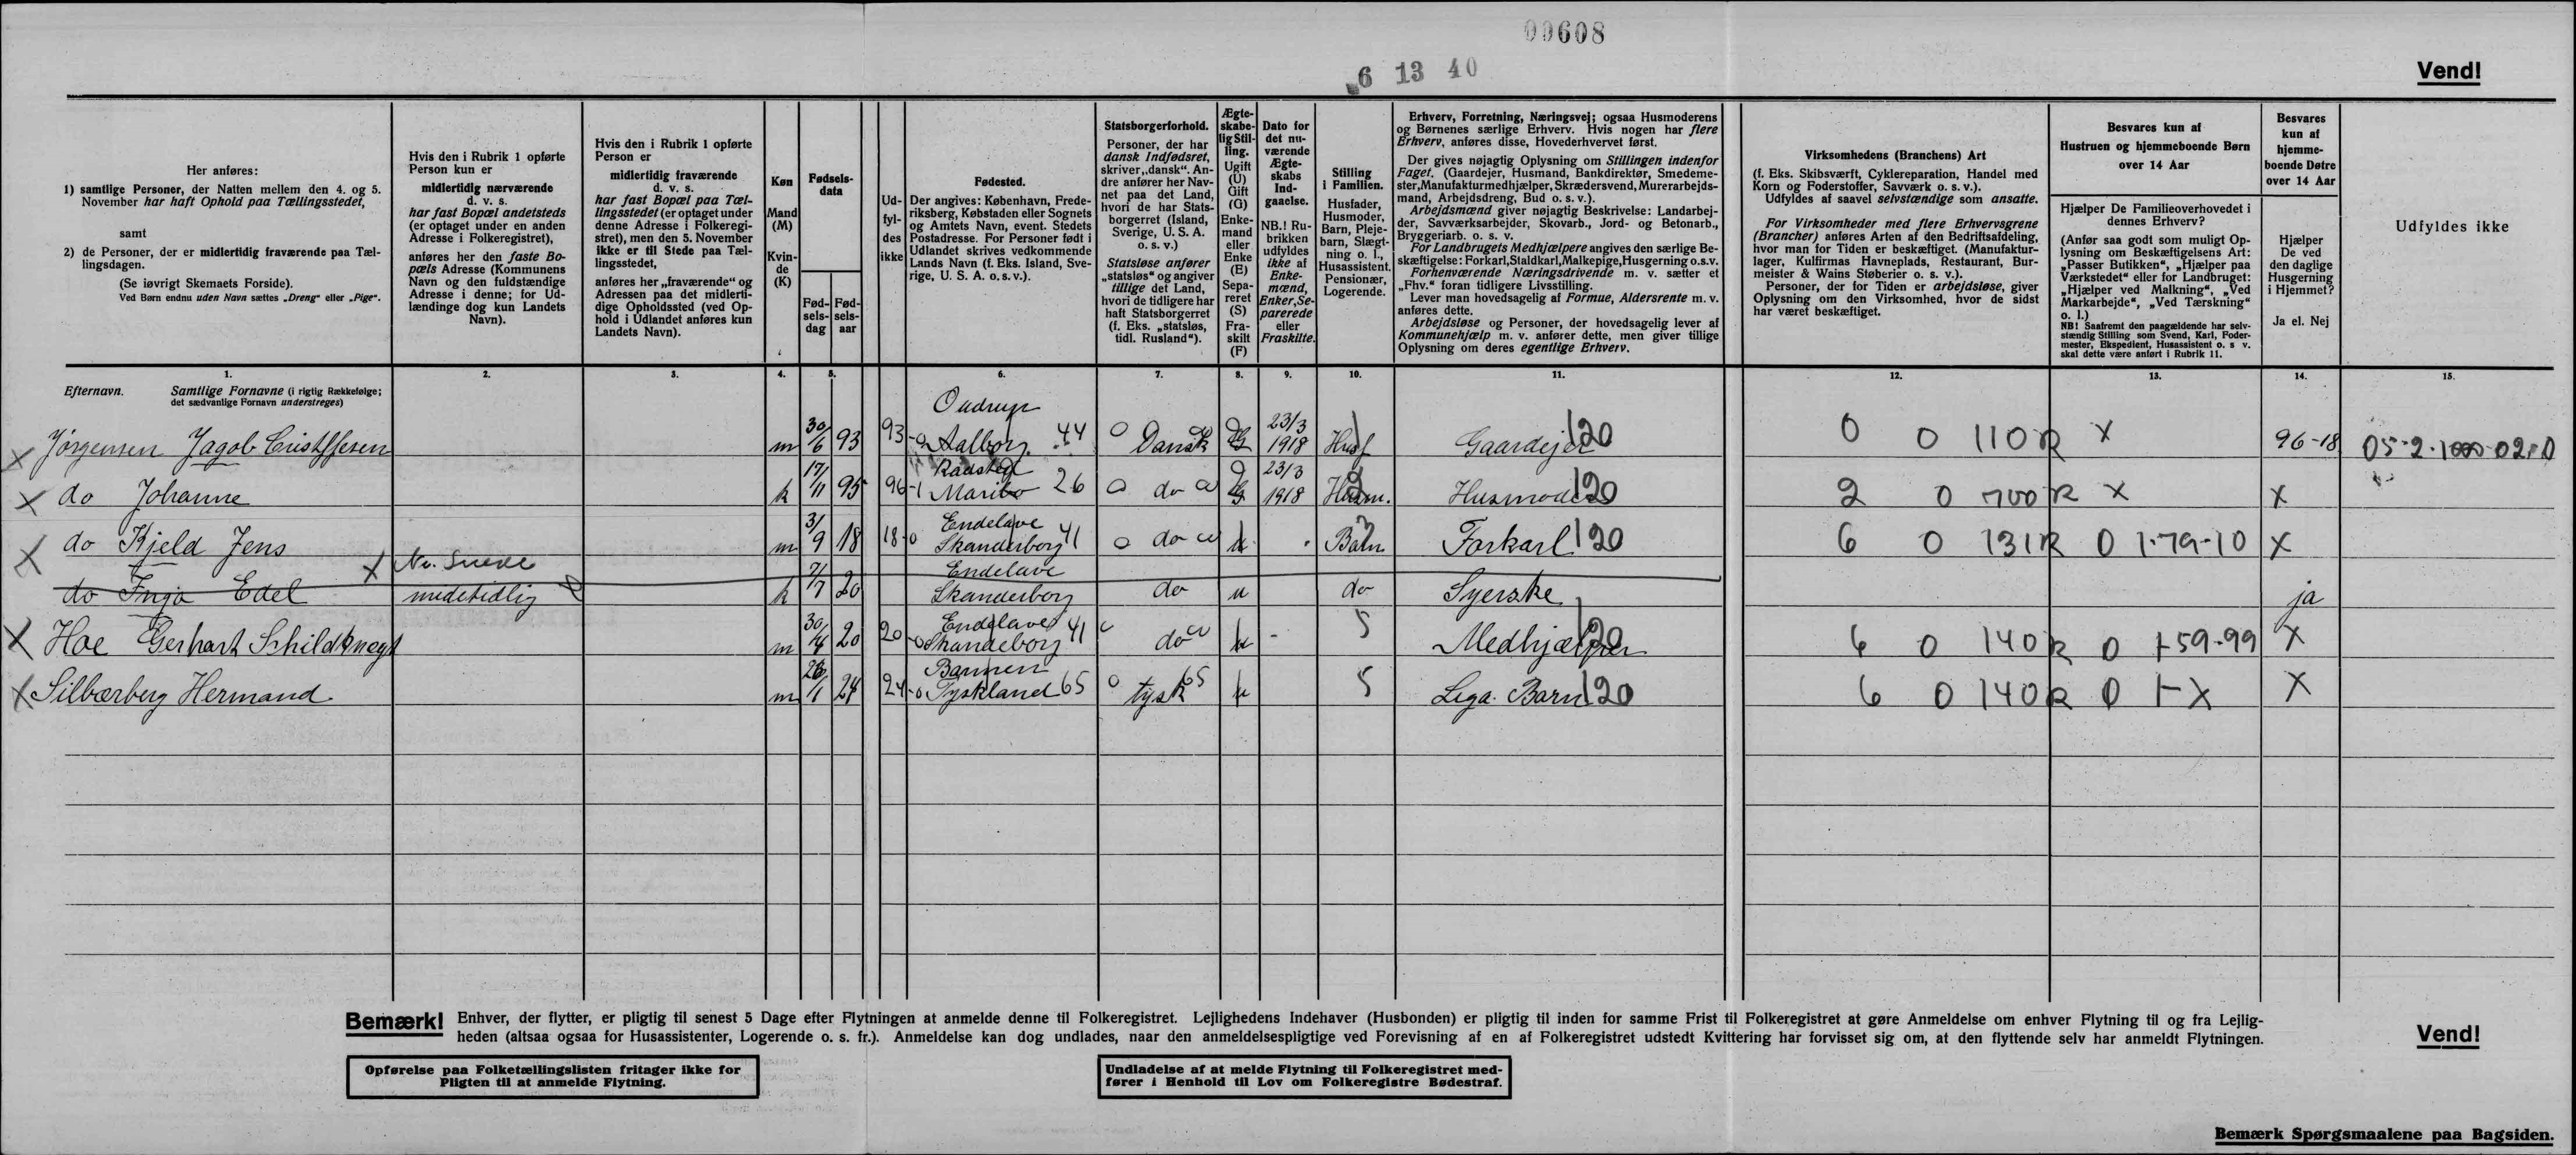 00608
6 13 40
Vend!
Her anføres:
1) samtlige Personer, der Natten mellem den 4. og 5. November har haft Ophold paa Tællingsstedet,
samt
2) de Personer, der er midlertidig fraværende paa Tællingsdagen.
(Se iøvrigt Skemaets Forside).
Ved Børn endnu uden Navn sættes „Dreng“ eller „Pige“.
Hvis den i Rubrik 1 opførte
Person kun er
midlertidig nærværende
d. v. s.
har fast Bopæl andetsteds
(er optaget under en anden
Adresse i Folkeregistret),
anføres her den faste Bo-
pæls Adresse (Kommunens
Navn og den fuldstændige
Adresse i denne; for Ud-
lændinge dog kun Landets
Navn).
Hvis den i Rubrik 1 opførte
Person er
midlertidig fraværende
d. v. s.
har fast Bopæl paa Tæl-
lingsstedet (er optaget under
denne Adresse i Folkeregi-
stret), men den 5. November
ikke er til Stede paa Tæl-
lingsstedet,
anføres her „fraværende“ og
Adressen paa det midlerti-
dige Opholdssted (ved Op-
hold i Udlandet anføres kun
Landets Navn).
Køn
Mand
(M)
Kvin-
de
(K)
Fødsels-
data
Fød-
sels-
dag
Fød-
sels-
aar
Ud-
fyl-
des
ikke
Fødested.
Der angives: København, Frede-
riksberg, Købstaden eller Sognets
og Amtets Navn, event. Stedets
Postadresse. For Personer født i
Udlandet skrives vedkommende
Lands Navn (f. Eks. Island, Sve-
rige, U. S. A. o. s. v.).
Statsborgerforhold.
Personer, der har
dansk Indfødsret,
skriver „dansk“. An-
dre anfører her Nav-
net paa det Land,
hvori de har Stats-
borgerret (Island,
Sverige, U. S. A.
o. s. v.)
Statsløse anfører
„statsløs“ og angiver
tillige det Land,
hvori de tidligere har
haft Statsborgerret
(f. Eks. „statsløs,
tidl. Rusland“).
Ægte-
skabe-
lig Stil-
ling.
Ugift
(U)
Gift
(G)
Enke-
mand
eller
Enke
(E)
Sepa-
reret
(S)
Fra-
skilt
(F)
Dato for
det nu-
værende
Ægte-
skabs
Ind-
gaaelse.
NB.! Ru-
brikken
udfyldes
ikke af
Enke-
mænd,
Enker, Se-
parerede
eller
Fraskilte.
Stilling
i Familien.
Husfader,
Husmoder,
Barn, Pleje-
barn, Slægt-
ning o. l.,
Husassistent,
Pensionær,
Logerende.
Erhverv, Forretning, Næringsvej; ogsaa Husmoderens
og Børnenes særlige Erhverv. Hvis nogen har flere
Erhverv, anføres disse, Hovederhvervet først.
Der gives nøjagtig Oplysning om Stillingen indenfor
Faget. (Gaardejer, Husmand, Bankdirektør, Smedeme-
ster, Manufakturmedhjælper, Skrædersvend, Murerarbejds-
mand, Arbejdsdreng, Bud o. s. v.).
Arbejdsmænd giver nøjagtig Beskrivelse: Landarbej-
der, Savværksarbejder, Skovarb., Jord- og Betonarb.,
Bryggeriarb. o. s. v.
For Landbrugets Medhjælpere angives den særlige Be-
skæftigelse: Forkarl, Staldkarl, Malkepige, Husgerning o.s.v.
Forhenværende Næringsdrivende m. v. sætter et
„Fhv.“ foran tidligere Livsstilling.
Lever man hovedsagelig af Formue, Aldersrente m. v.
anføres dette.
Arbejdsløse og Personer, der hovedsagelig lever af
Kommunehjælp m. v. anfører dette, men giver tillige
Oplysning om deres egentlige Erhverv.
Virksomhedens (Branchens) Art
(f. Eks. Skibsværft, Cyklereparation, Handel med
Korn og Foderstoffer, Savværk o. s. v.).
Udfyldes af saavel selvstændige som ansatte.
For Virksomheder med flere Erhvervsgrene
(Brancher) anføres Arten af den Bedriftsafdeling,
hvor man for Tiden er beskæftiget. (Manufaktur-
lager, Kulfirmas Havneplads, Restaurant, Bur-
meister & Wains Støberier o. s. v.).
Personer, der for Tiden er arbejdsløse, giver
Oplysning om den Virksomhed, hvor de sidst
har været beskæftiget.
Besvares kun af
Hustruen og hjemmeboende Børn
over 14 Aar
Hjælper De Familieoverhovedet i
dennes Erhverv?
(Anfør saa godt som muligt Op-
lysning om Beskæftigelsens Art:
„Passer Butikken“, „Hjælper paa
Værkstedet“ eller for Landbruget:
„Hjælper ved Malkning“, „Ved
Markarbejde“, „Ved Tærskning“
o. l.)
NB! Saafremt den paagældende har selv-
stændig Stilling som Svend, Karl, Foder-
mester, Ekspedient, Husassistent o. s. v.
skal dette være anført i Rubrik 11.
Besvares
kun af
hjemme-
boende Døtre
over 14 Aar
Hjælper
De ved
den daglige
Husgerning
i Hjemmet?
Ja el. Nej
Udfyldes ikke
1. 2. 3. 4. 5. 6. 7. 8. 9. 10. 11. 12. 13. 14. 15.
Efternavn. Samtlige Fornavne (i rigtig Rækkefølge;
det sædvanlige Fornavn understreges)
Oudrup
X Jørgensen Jagob Cristffesen m 30/6 93 93-0 Aalborg 44 0 Dansk G 23/3 1918 Husf 1 Gaardejer 120 0 0 110 R X 96-18
Radsted
X do Johanne k 17/11 95 96-1 Maribo 26 0 do G 23/3 1918 Husm. 2 Husmoder 120 2 0 700 R X X
Endelave
X do Kjeld Jens m 3/9 18 18-0 Skanderborg 41 0 do u Barn Forkarl 120 6 0 131 R 0 1-79-10 X
X Nr. Snede Endelave
do Inga Edel midetidlig k 7/7 20 Skanderborg do u do Syerske ja
Endelave
X Hoe Gerhart Schildknegt m 30/4 20 20-0 Skandeborg 41 do u - 5 Medhjælper 120 6 0 140 R 0 1-59-99 X
Barmen
X Silbærberg Hermand m 26/1 24 24-0 Tyskland 65 0 tysk 65 u 5 Lega. Barn 120 6 0 140 R 0 1-X X
Bemærk! Enhver, der flytter, er pligtig til senest 5 Dage efter Flytningen at anmelde denne til Folkeregistret. Lejlighedens Indehaver (Husbonden) er pligtig til inden for samme Frist til Folkeregistret at gøre Anmeldelse om enhver Flytning til og fra Lejlig-
heden (altsaa ogsaa for Husassistenter, Logerende o. s. fr.). Anmeldelse kan dog undlades, naar den anmeldelsespligtige ved Forevisning af en af Folkeregistret udstedt Kvittering har forvisset sig om, at den flyttende selv har anmeldt Flytningen.
Vend!
Opførelse paa Folketællingslisten fritager ikke for
Pligten til at anmelde Flytning.
Undladelse af at melde Flytning til Folkeregistret med-
fører i Henhold til Lov om Folkeregistre Bødestraf.
Bemærk Spørgsmaalene paa Bagsiden.